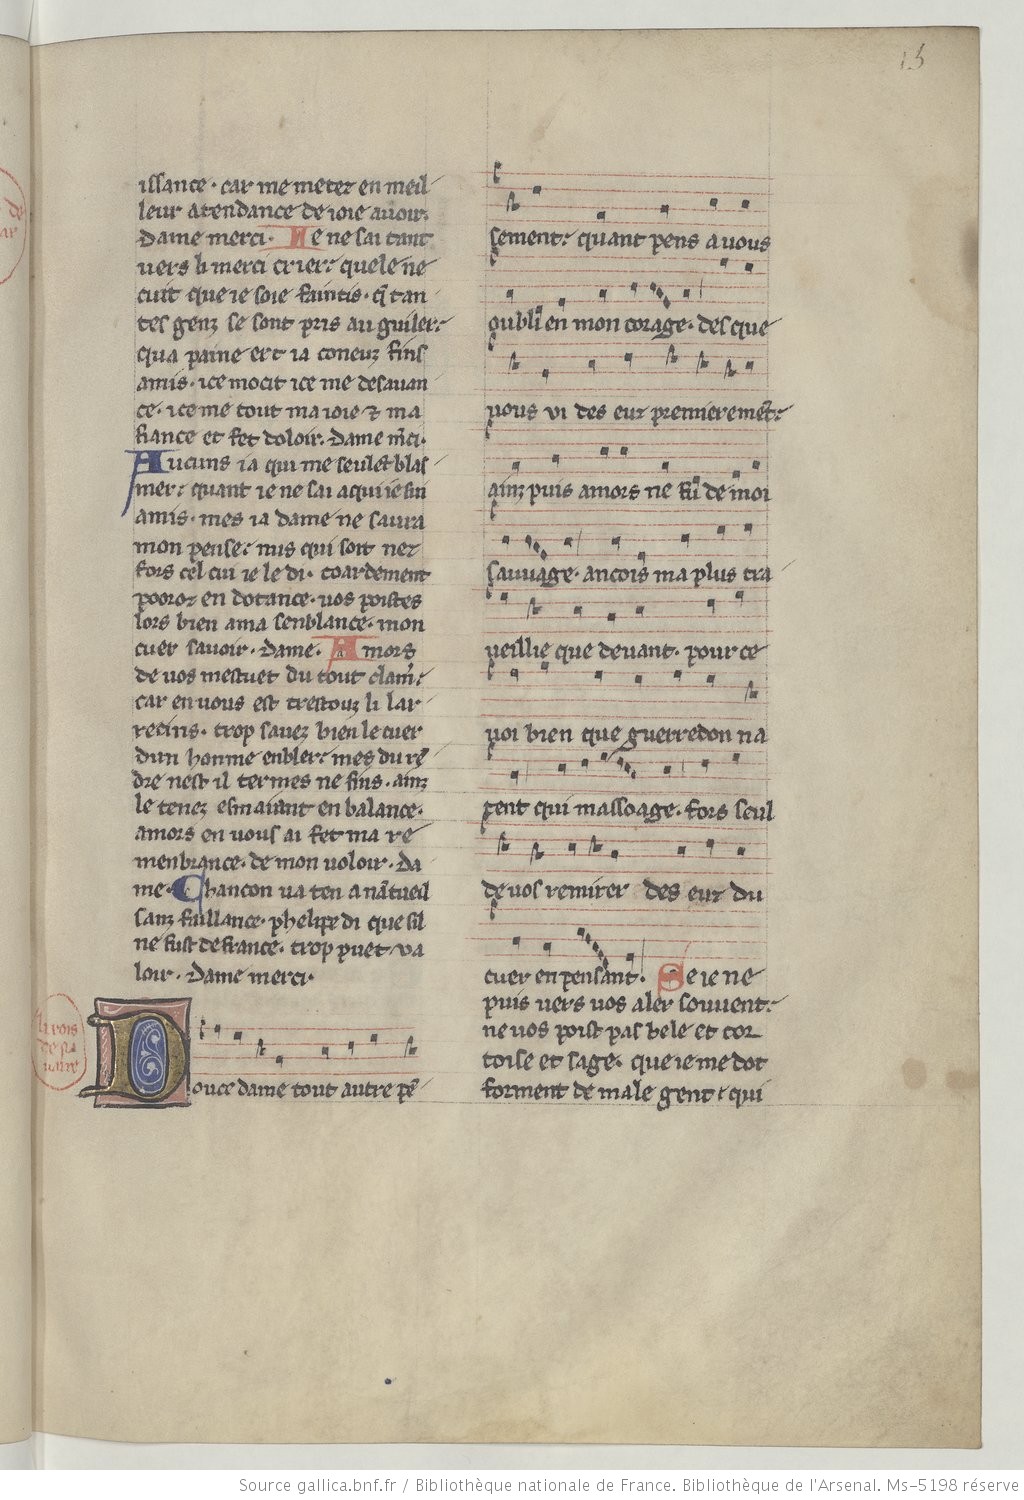 15
issance · car me metez en meil
leur atendance de ioie auoir.
Dame merci · Ie ne sai tant
uers li merci crier: quele ne
cuit que ie soie faintis · q̃ tan
tes genz se sont pris au guiler:
qua paine ert ia coneuz fins
amis · ice mocit ice me desauan
ce · ice me tout ma ioie ⁊ ma
fiance et fet doloir. Dame m̃ci.
Aucuns ia qui me seulent blas
mer: quant ie ne sai a qui ie sui
amis · mes ia dame ne saura
mon pense: nus qui soit nez
fors cel cui ie le di · coardement
pooroz en dotance · uos poistes
lors bien a ma senblance · mon
cuer sauoir · Dame · Amors
de uos mestuet du tout clam̃:
car en uous est trestouz li lar
recins · trop sauez bien le cuer
dun homme enbler: mes du rẽ
dre nest il termes ne fins · ainz
le tenez esmaiant en balance ·
amors en uous ai fet ma re
menbrance · de mon uoloir · Da
me · Chancon ua ten a nãtueil
sanz faillance · phelipe di que sil
ne fust de france · trop puet ua
loir · Dame merci ·
li rois
de na
uarre
Douce dame tout autre pẽ
sement: quant pens a uous
oubli en mon corage · des que
uous ui des euz premierem̃t:
ainz puis amors ne fu de moi
sauuage · ancois ma plus tra
ueillie que deuant · pour ce
uoi bien que guerredon na
tent qui massoage · fors seul
de uos remirer des euz du
cuer en pensant · Se ie ne
puis uers uos aler souuent:
ne uos poist pas bele et cor
toise et sage · que ie me dot
forment de male gent: qui
Source gallica.bnf.fr / Bibliothèque nationale de France. Bibliothèque de l'Arsenal. Ms-5198 réserve